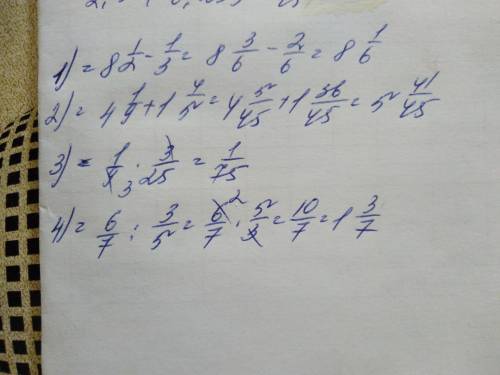 1) = 8 1/2 - 1/3 = 8 3/6 - 2/6 = 8 1/6
2) = 4 1/9 + 1 4/5 = 4 5/45 + 1 36/45 = 5 41/45
3) = 1/9 3 · 3/25 = 1/75
4) = 6/7 : 3/5 = 6/7 2 · 5/3 = 10/7 = 1 3/7